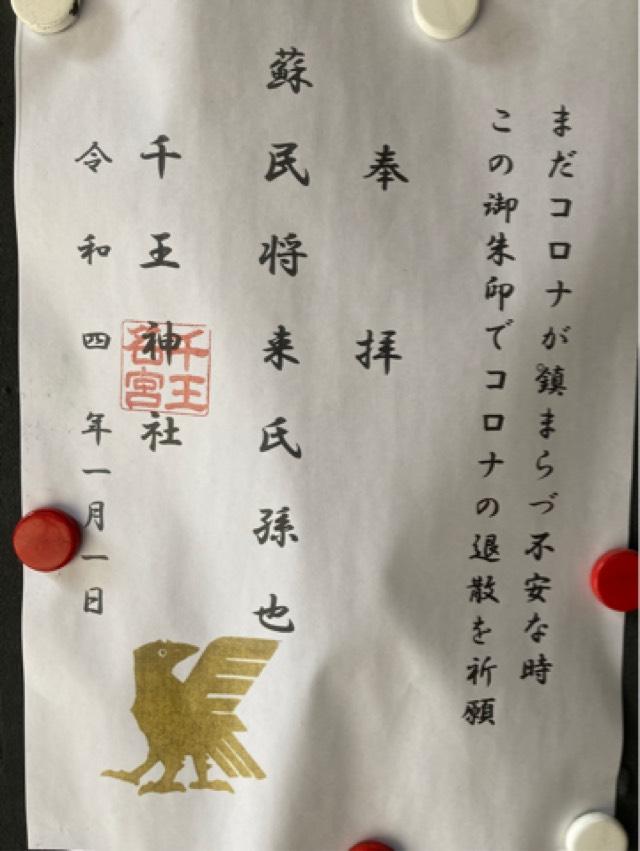 まだコロナが鎮まらづ不安な時
この御朱印でコロナの退散を祈願
奉拝
蘇民将来氏孫也
千王神社
千王
若宮
令和四年一月一日